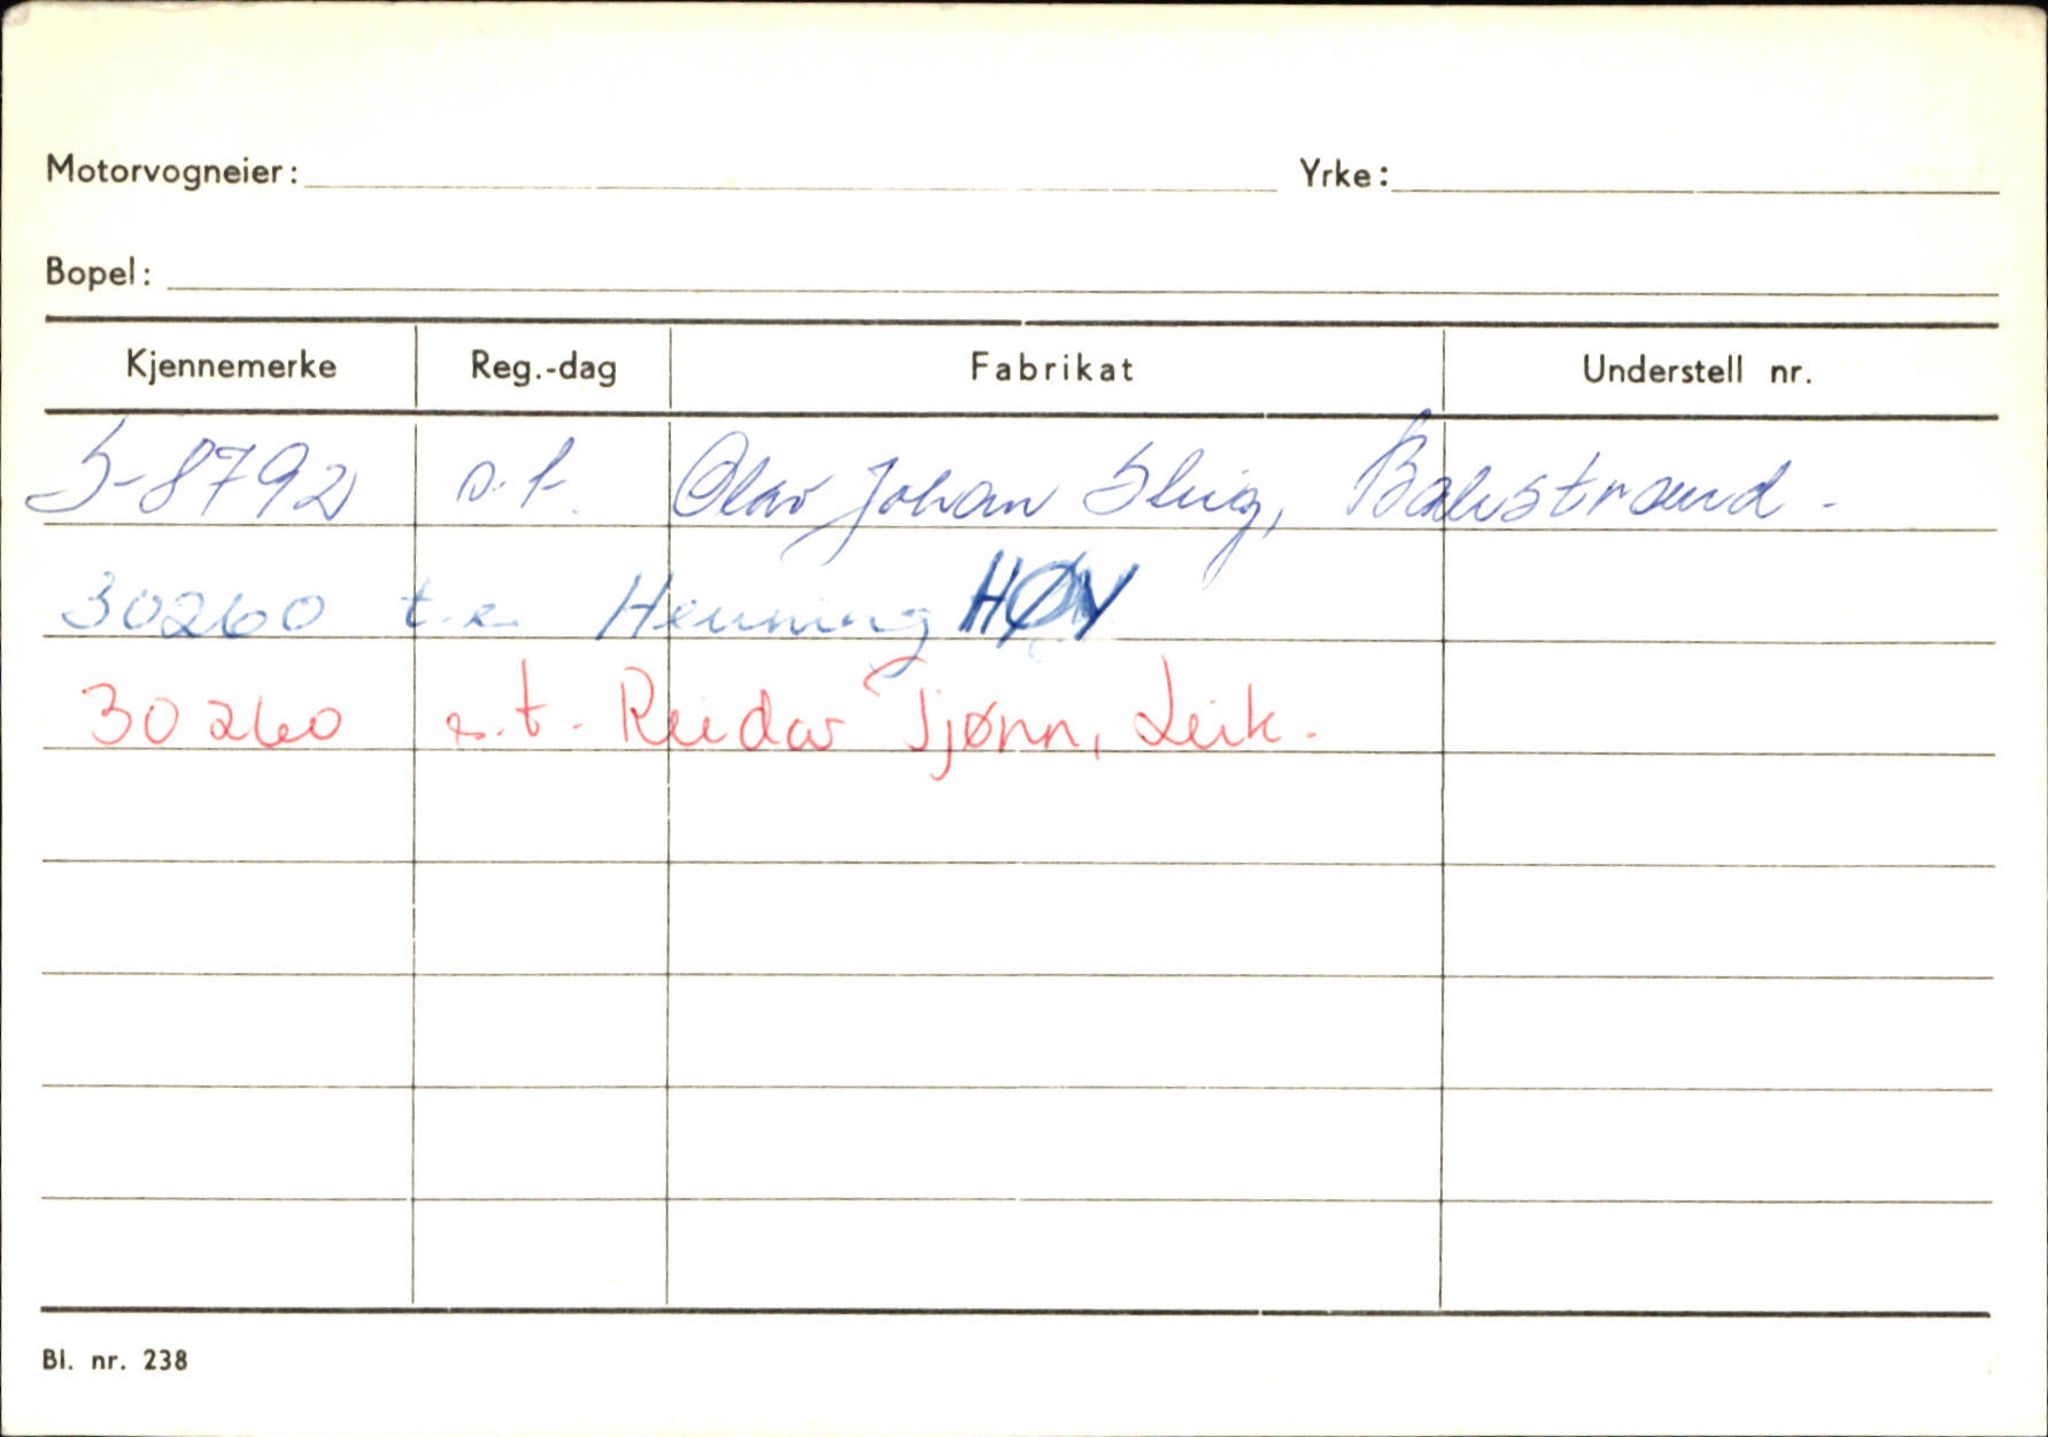 Motorvogneier: Yrke:
Bopel:
Kjennemerke Reg.-dag Fabrikat Understell nr.
S-8792 s.t. Olav Johan Balestrand -
30260 Henning HØY
30260 s.t. Reidar Tjønn, Leik.
Bl. nr. 238